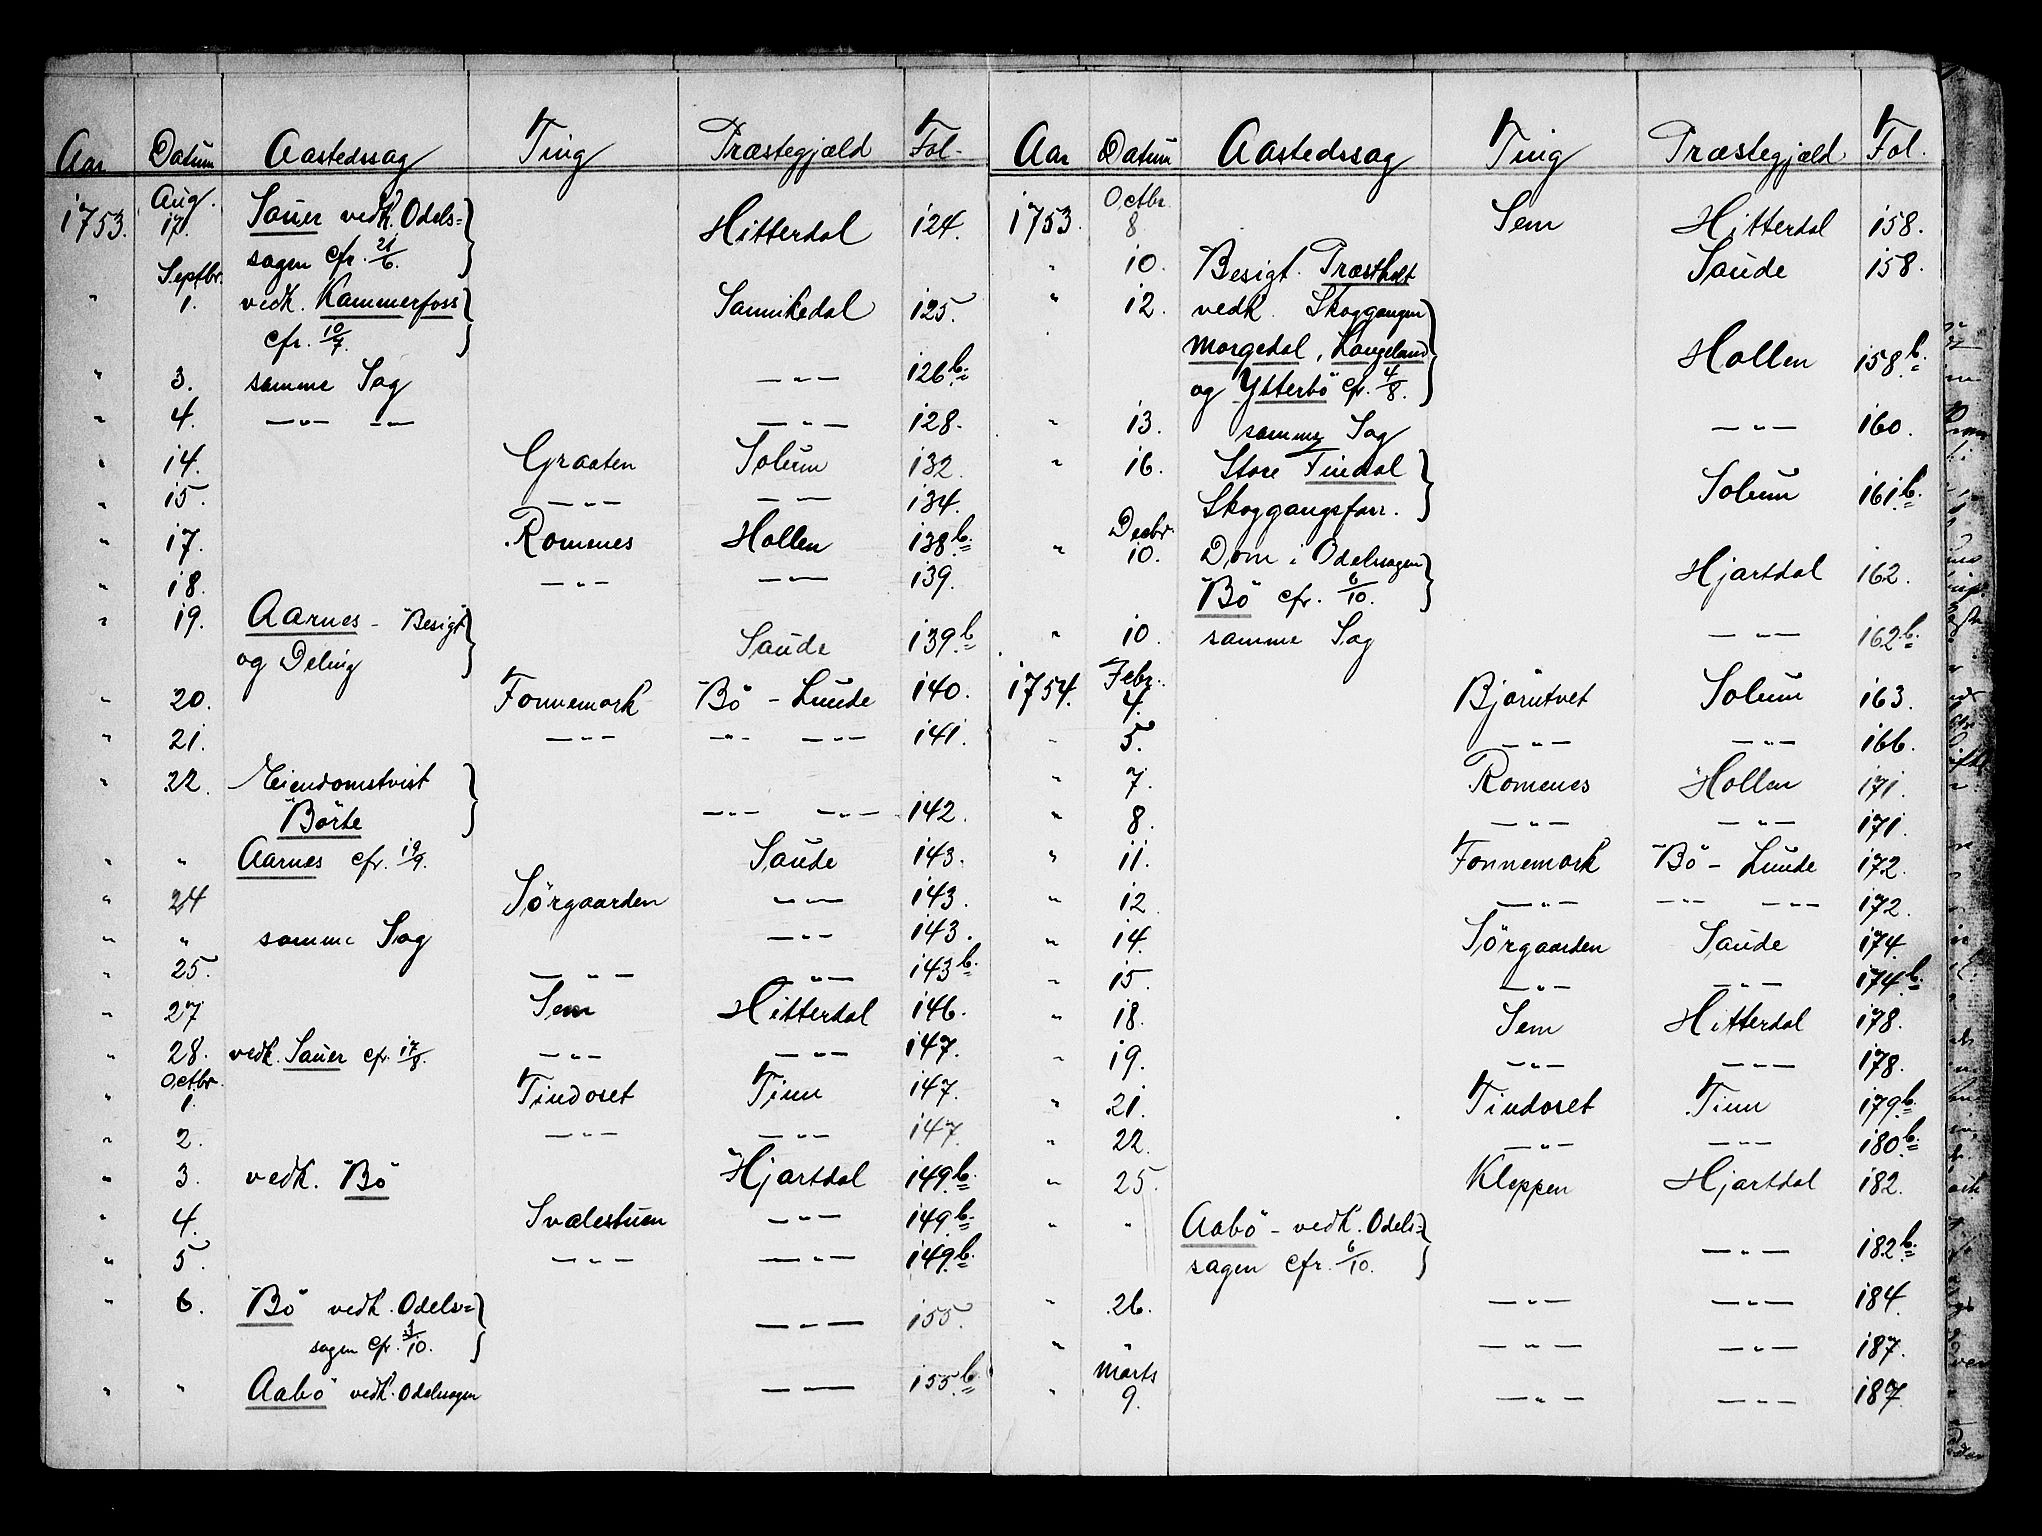 Aar Datum Aastedssag Ting Præstegjæld Fol.
1753. Aug. 17. Sauer vedk. Odels=
sagen cfr. 21/6. Hitterdal 124.
" Septbr. 1. vedk. Kammerfoss
cfr. 10/7. Sannikedal 125.
" 3. samme Sag —"— 126b.
" 4. —"— —"— —"— 128.
" 14. Graaten Solum 132.
" 15. —"— —"— 134.
" 17. Romenes Hollen 138b.
" 18. —"— —"— 139.
" 19. Aarnes - Besigt.
og Deling Saude 139b.
" 20. Fonnemork Bö - Lunde 140.
" 21. —"— —"— —"— 141.
" 22. Eiendomstvist
Börte —"— —"— 142.
" " Aarnes cfr. 19/9. Saude 143.
" 24 Sörgaarden —"— 143.
" " samme Sag —"— 143.
" 25. —"— —"— 143b.
" 27 Sem Hitterdal 146.
" 28. vedk. Sauer cfr. 17/8. —"— —"— 147.
" Octbr. 1. Tindoset Tinn 147.
" 2. —"— —"— 147.
" 3. vedk. Bö Hjartdal 149b.
" 4. Svalestuen —"— 149b.
" 5. —"— —"— 149b.
" 6. Bö vedk. Odels=
sagen cfr. 3/10. —"— 155.
" " Aabö vedk. Odelsagen —"— 155b.
Aar Datum Aastedssag Ting Præstegjæld Fol.
1753. Octbr. 8 Sem Hitterdal 158.
" 10. Besigt. Præstholt Saude 158.
" 12. vedk. Skoggangen
Morgedal, Langeland
og Ytterbö cfr. 4/8. Hollen 158b.
" 13. samme Sag —"— 160.
" 16. Store Findal
Skoggangsforr. Solum 161b.
" Decbr. 10. Dom i Odelsagen
Bö cfr. 6/10. Hjartdal 162.
" 10. samme Sag —"— 162b.
1754. Febr. 4. Björntvet Solum 163.
" 5. —"— —"— 166.
" 7. Romenes Hollen 171.
" 8. —"— —"— 171.
" 11. Fonnemork Bö - Lunde 172.
" 12. —"— —"— —"— 172.
" 14. Sörgaarden Saude 174.
" 15. —"— —"— 174b.
" 18. Sem Hitterdal 178.
" 19. —"— —"— 178.
" 21. Tindoset Tinn 179b.
" 22. —"— —"— 180b.
" 25. Kleppen Hjartdal 182.
" " Aabö - vedk. Odels=
sagen cfr. 6/10. —"— 182b.
" 26. —"— —"— 184.
" " —"— —"— 187.
" Marts 9. —"— —"— 187.